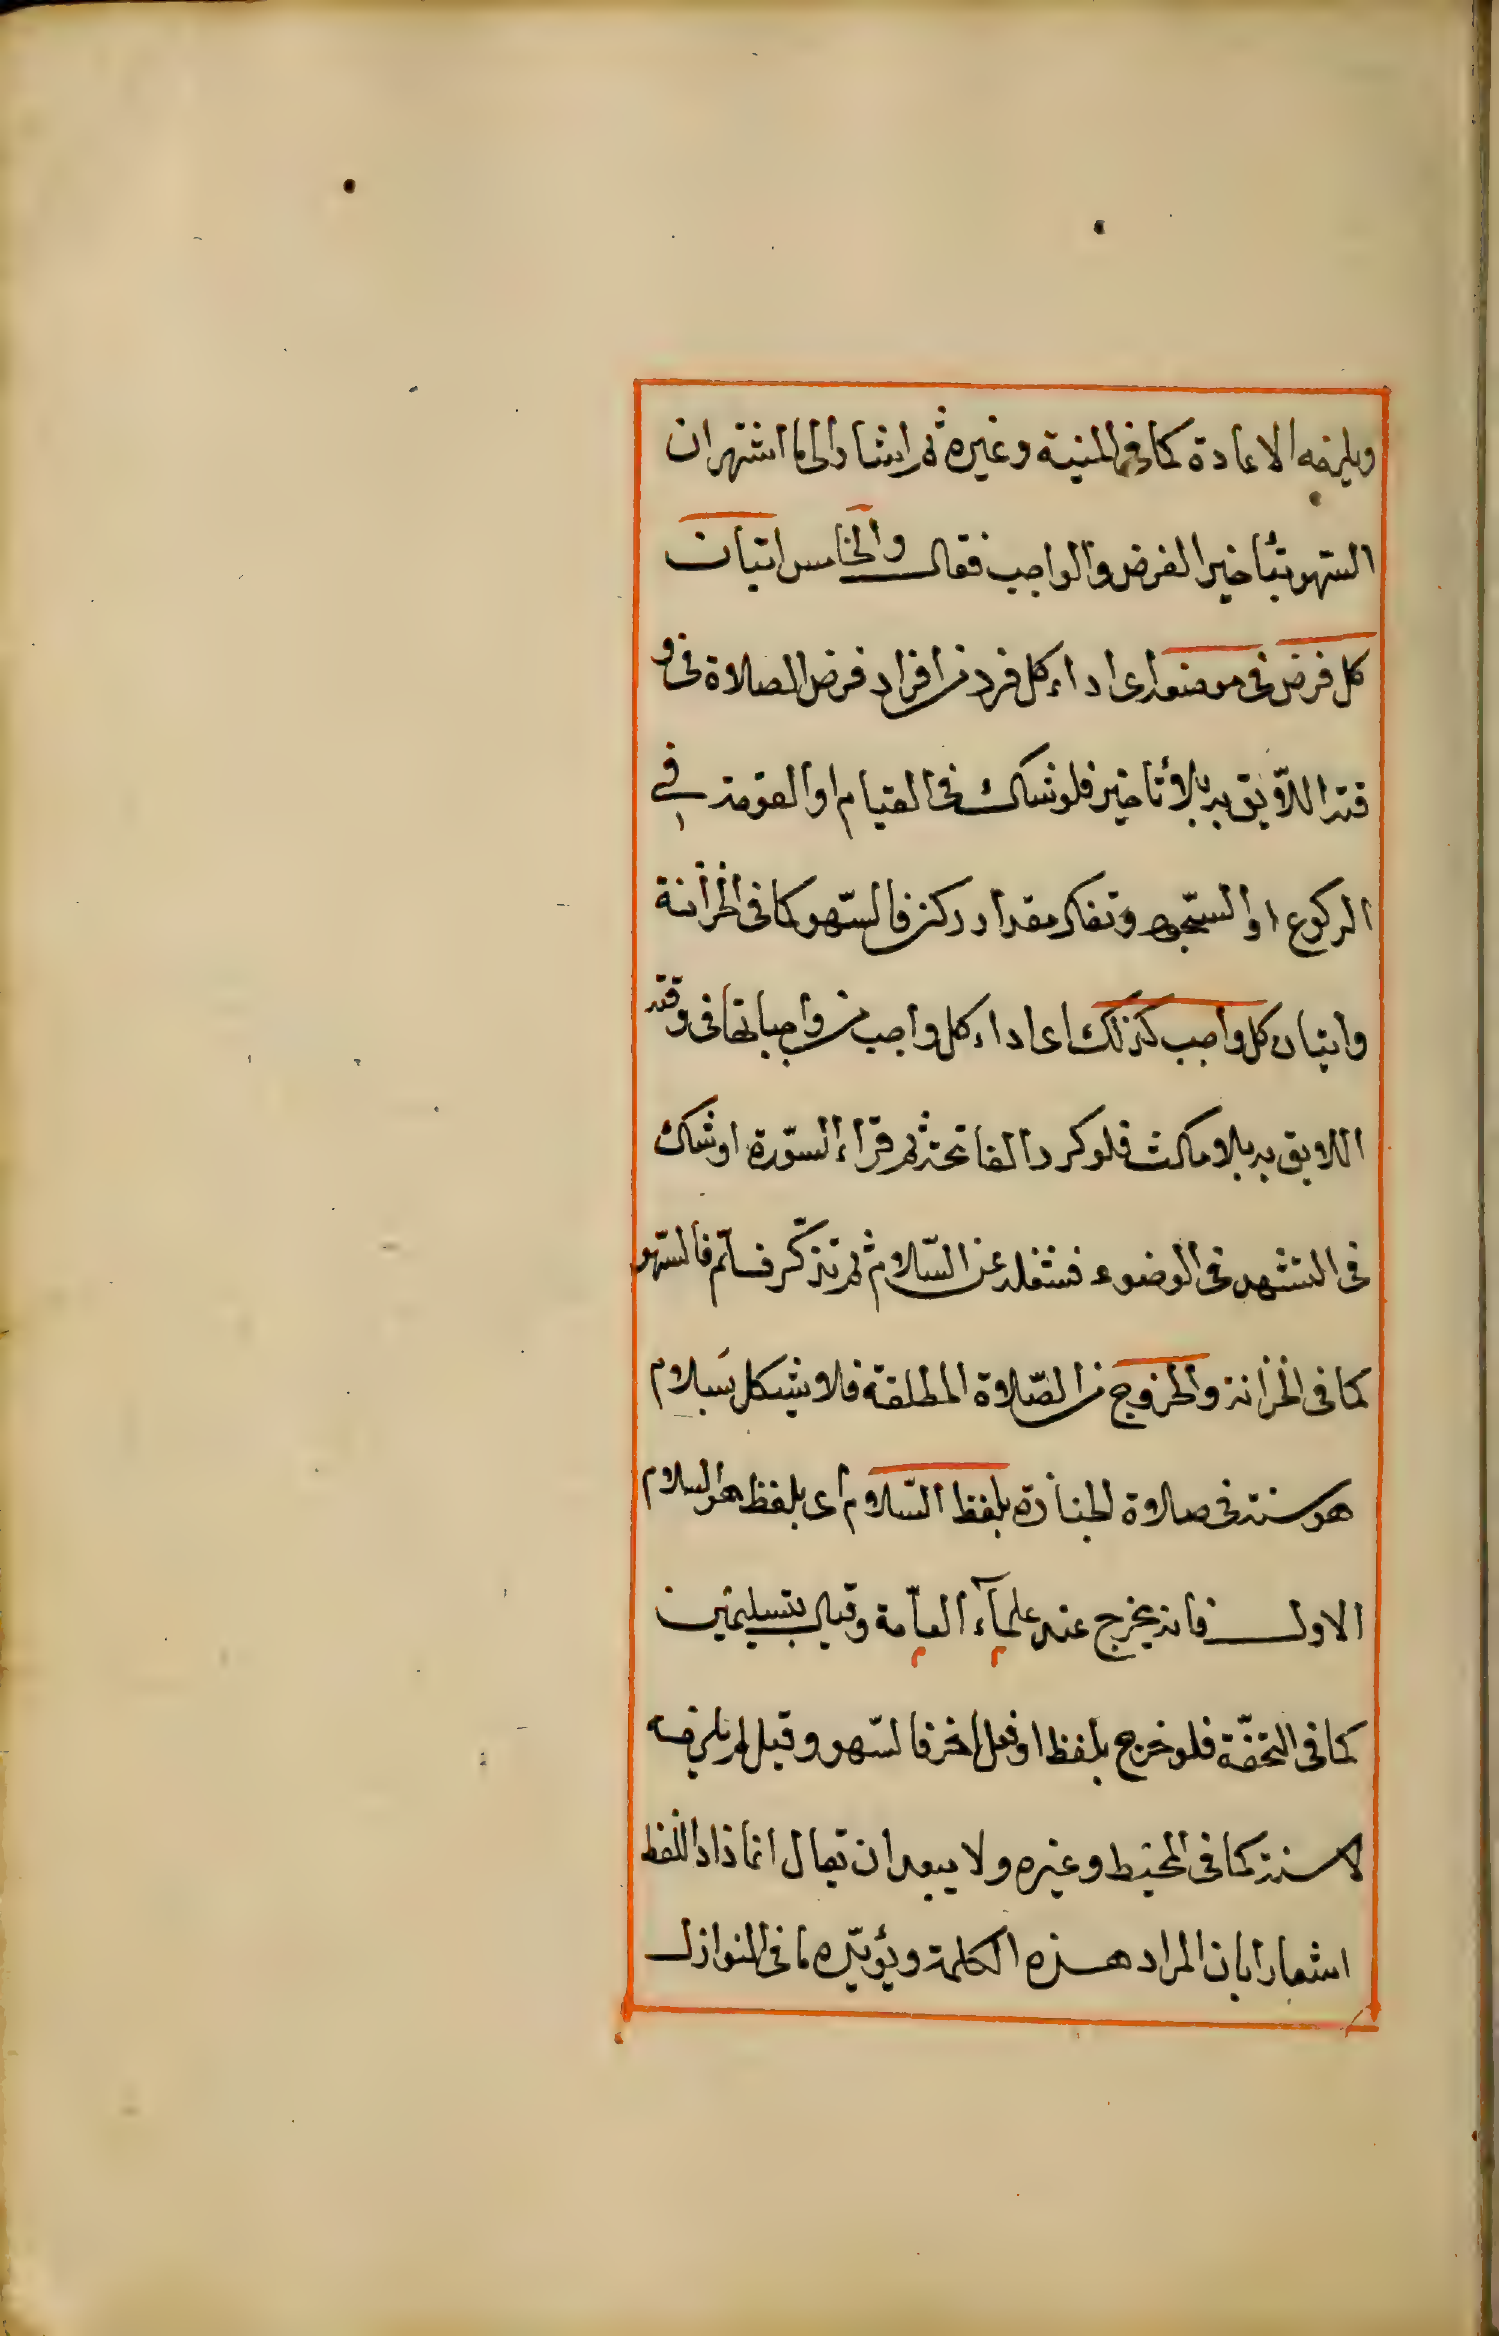 ويلزمه الاعادة كما في المنية وغيره ثم اشار الى ما اشتهر ان
السّهو بتأخير الفرض والواجب فقال والخامس اتيان
كل فرض في موضعه اى اداء كل فرد من افراد فرض الصلاة في و
قته اللآيق به بلا تأخير فلو شك في القيام او القومة في
الركوع او السّجود وتفكر مقدار ركن فالسّهو كما في الخزانة
واتيان كل واجب كذلك اى اداء كل واجب من واجباتها في وقته
اللايق به بلا مكث فلو كرر الفاتحة ثم قراء السّورة او شك
في التشهد في الوضوء فشغله عن السّلام ثم تذكّر فسلّم فالسّهو
كما في الخزانة والخروج من الصّلاة المطلقة فلا يشكل بسلام
هو سنة في صلاة الجنازة بلفظ السّلام اى بلفظ هو السلام
الاول فانه يخرج عند علمآء العآمة وقيل بتسليمتين
كما في التحفّة فلو خرج بلفظ او فعل اخر فالسّهو وقيل لم يلزمه
لا سنة كما في المحيط وغيره ولا يبعد ان يقال انما زاد اللفظ
اشعارا بان المراد هذه الكلمة ويؤيّده ما في النوازل